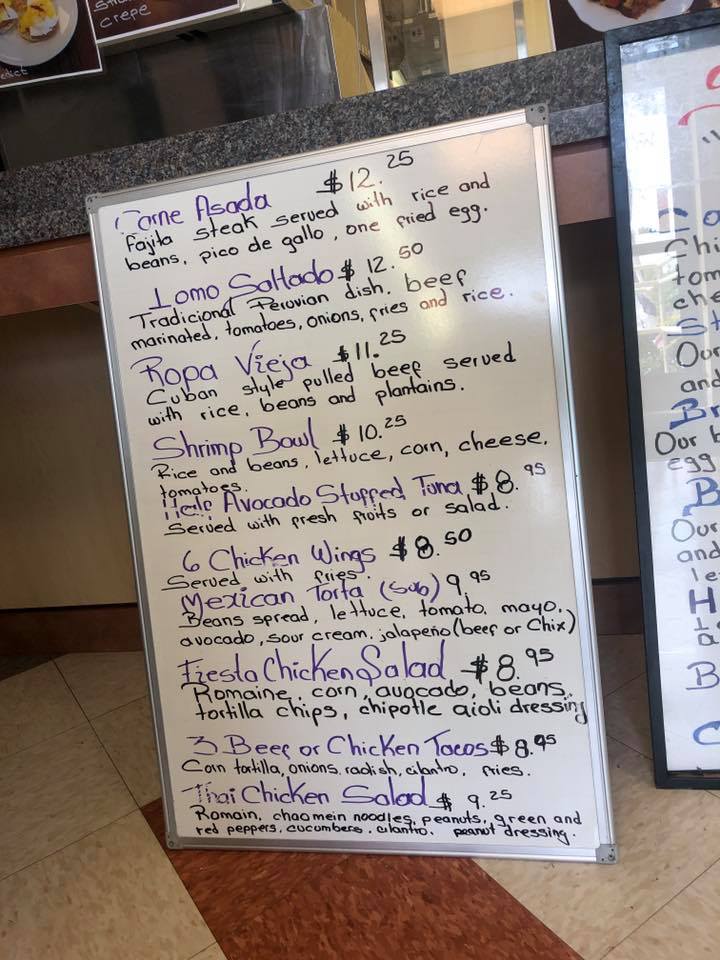 crepe
Carne Asada $12.25
Fajita steak served with rice and
beans, pico de gallo, one fried egg.
Lomo Saltado $12.50
Tradicional Peruvian dish. beef
marinated, tomatoes, onions, fries and rice.
Ropa Vieja $11.25
Cuban style pulled beef served
with rice, beans and plantains.
Shrimp Bowl $10.25
Rice and beans, lettuce, corn, cheese,
tomatoes.
Half Avocado Stuffed Tuna $8.95
Served with fresh fruits or salad.
6 Chicken Wings $8.50
Served with fries.
Mexican Torta (Sub) 9.95
Beans spread, lettuce, tomato, mayo,
avocado, sour cream, jalapeño (beef or Chix)
Fiesta Chicken Salad $8.95
Romaine, corn, avocado, beans,
tortilla chips, chipotle aioli dressing
3 Beef or Chicken Tacos $8.95
Corn tortilla, onions, radish, cilantro, fries.
Thai Chicken Salad $9.25
Romain, chaomein noodles, peanuts, green and
red peppers, cucumbers, cilantro, peanut dressing.
Chi
tom
che
Our
and
Our b
egg
Our
and
le